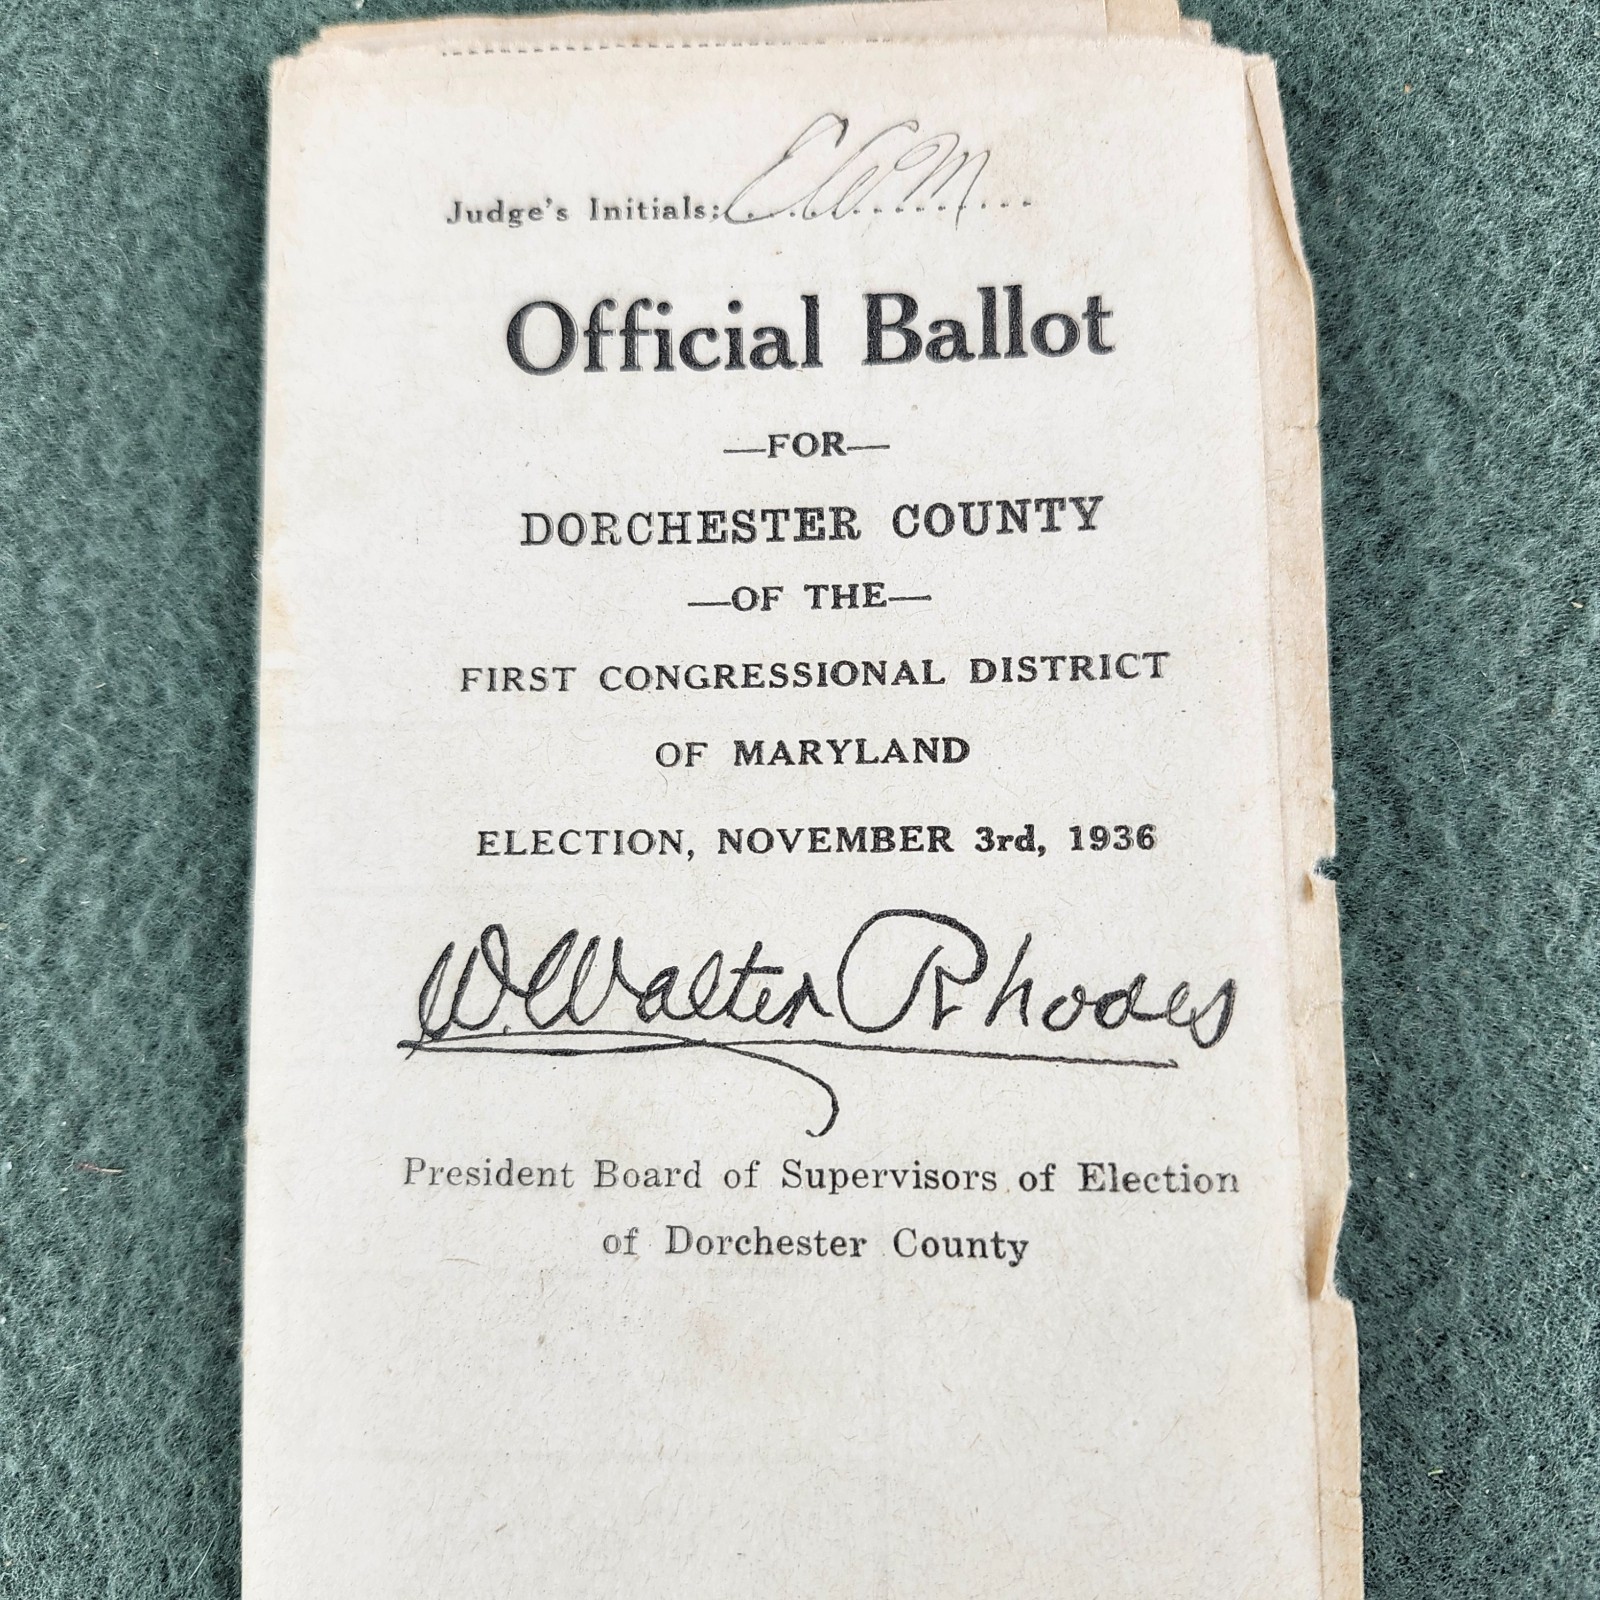 Judge's Initials:
Official Ballot
—FOR—
DORCHESTER COUNTY
—OF THE—
FIRST CONGRESSIONAL DISTRICT
OF MARYLAND
ELECTION, NOVEMBER 3rd, 1936
W. Walter Rhodes
President Board of Supervisors of Election
of Dorchester County